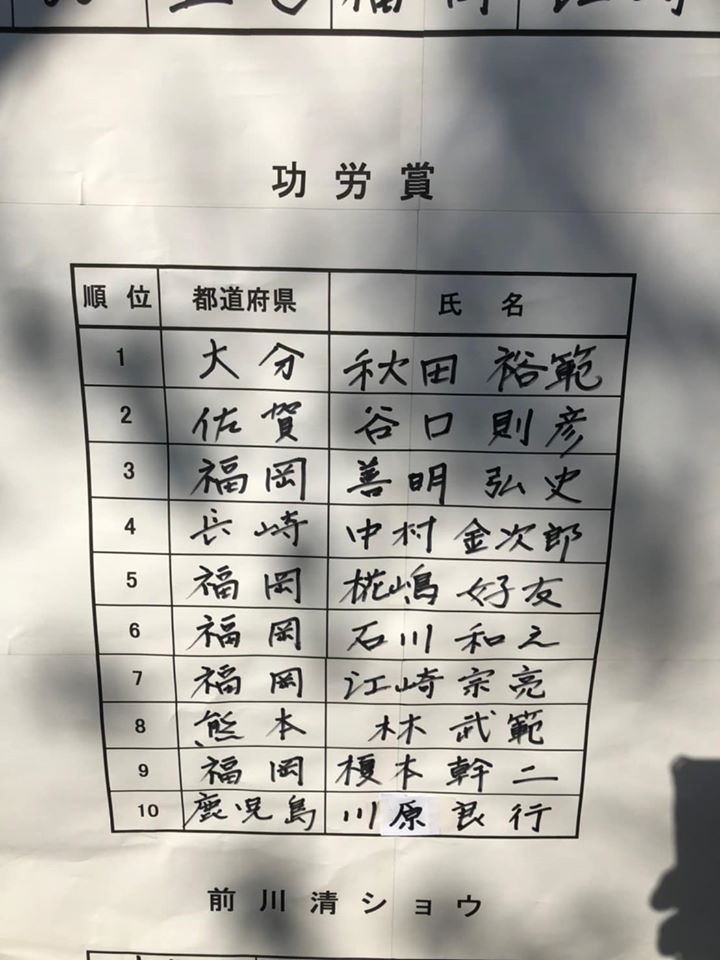 功労賞
順位 都道府県 氏名
1 大分 秋田 裕範
2 佐賀 谷口 則彦
3 福岡 善明 弘史
4 長崎 中村 金次郎
5 福岡 椛嶋 好友
6 福岡 石川 和之
7 福岡 江崎 宗亮
8 熊本 林 武範
9 福岡 榎本 幹二
10 鹿児島 川原 良行
前川清ショウ